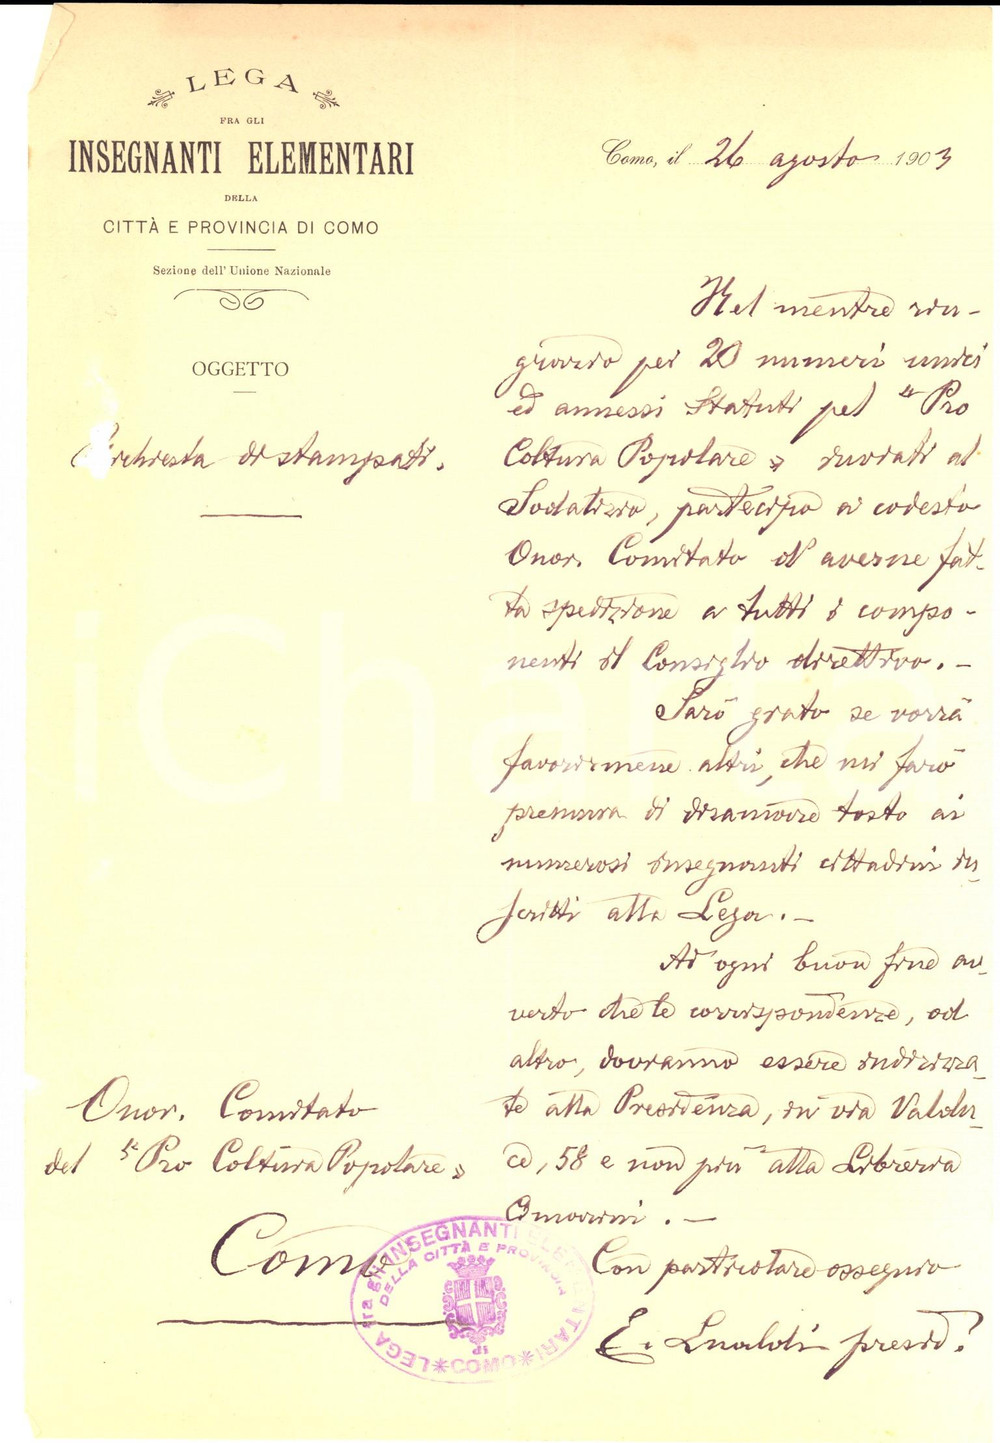 LEGA
FRA GLI
INSEGNANTI ELEMENTARI
DELLA
CITTÀ E PROVINCIA DI COMO
Sezione dell' Unione Nazionale
OGGETTO
Richiesta di stampati.
Como, il 26 agosto 1903
Nel mentre rin-
grazio pei 20 numeri unici
ed annessi Statuti pel "Pro
Coltura Popolare" inviati al
Sodalizio, partecipo a codesto
Onor. Comitato d'averne fat-
ta spedizione a tutti i compo-
nenti il Consiglio direttivo. -
Sarò grato se vorrà
favorirmene altri, che mi farò
premura di diramare tosto ai
numerosi insegnanti cittadini in-
scritti alla Lega. -
Ad ogni buon fine av-
verto che le corrispondenze, od
altro, dovranno essere indirizza-
te alla Presidenza, in via Valdu-
ce, 58 e non più alla Libreria
. -
Con particolare ossequio
E. Lualdi presid.
Onor. Comitato
del "Pro Coltura Popolare"
Como
LEGA fra gli INSEGNANTI ELEMENTARI
DELLA CITTÀ E PROVINCIA
DI
COMO